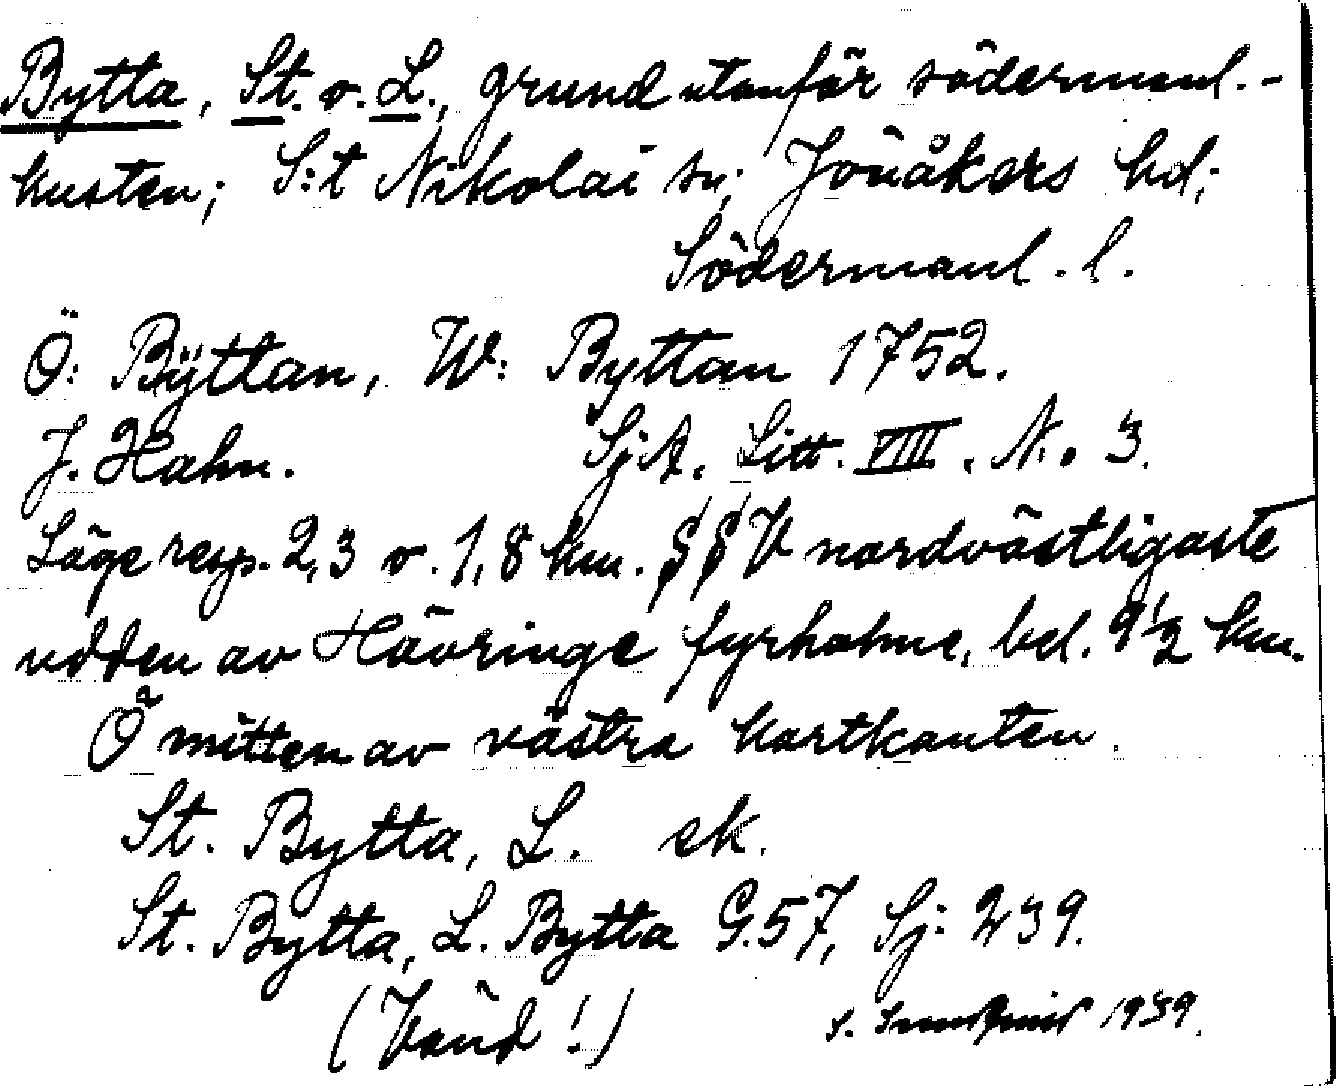 Bytta, St. o. L., grund utanför södermanl.-
kusten; S:t Nikolai sn; Jönåkers hd;
Södermanl. l.
Ö: Bÿttan, W: Byttan 1752.
J. Hahn. SjA. Litt. VIII. N.o 3.
Läge resp. 2,3 o. 1,8 km. V nordvästligaste
udden av Hävringe fyrholme, bel. 9½ km.
Ö mitten av västra kartkanten.
St. Bytta, L. ek.
St. Bytta, L. Bytta G.57, Sj: 239.
(Vänd!) 1939.